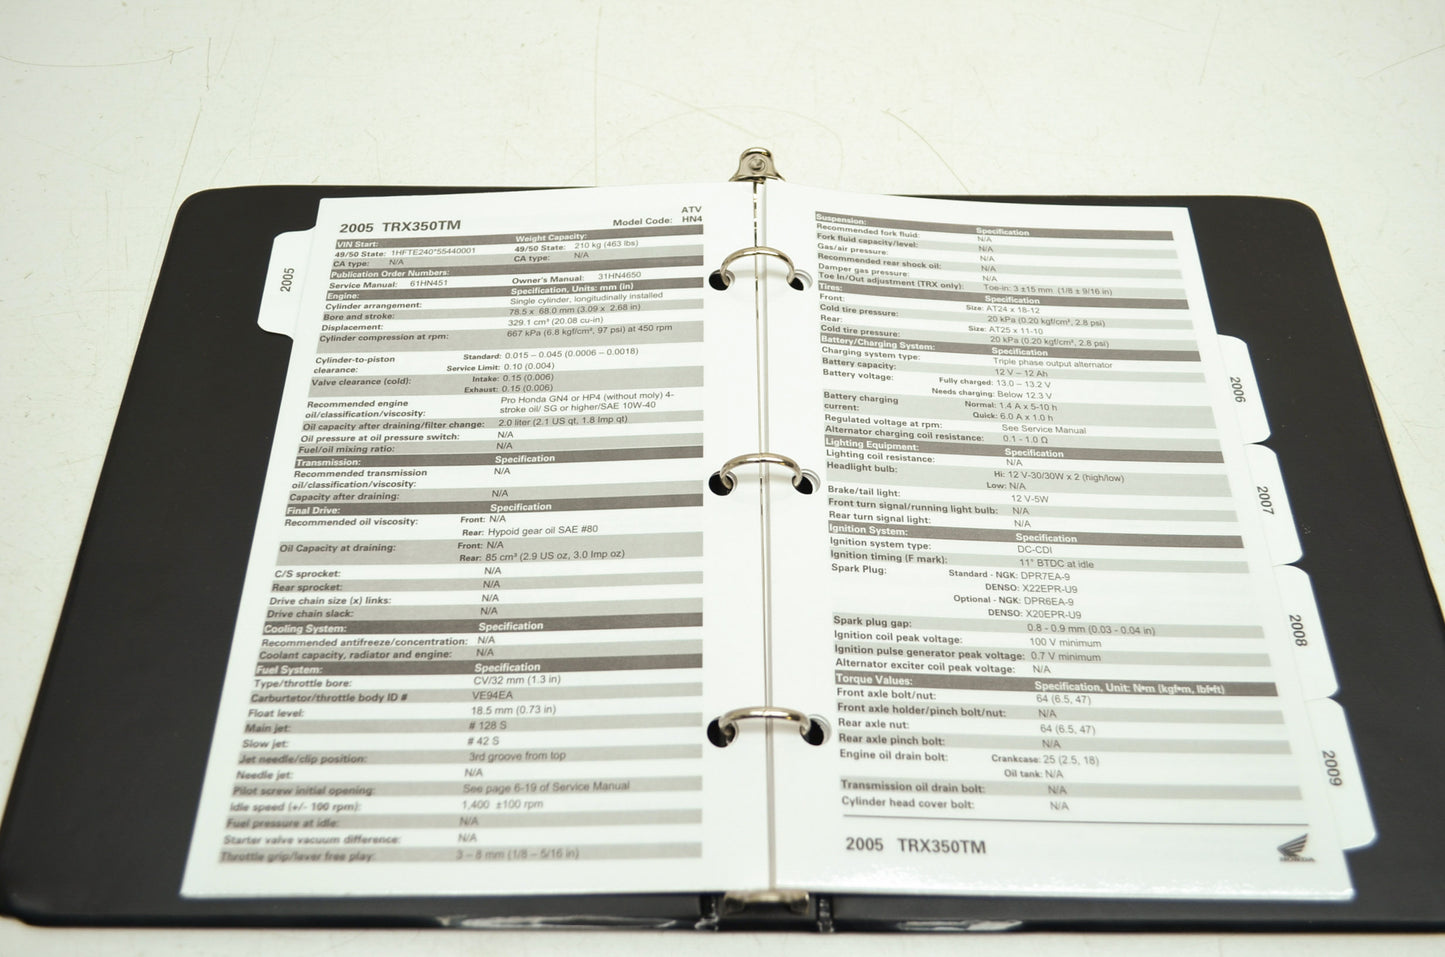 2005
2005 TRX350TM
ATV
Model Code: HN4
VIN Start: Weight Capacity:
49/50 State: 1HFTE240*55440001 49/50 State: 210 kg (463 lbs)
CA type: N/A CA type: N/A
Publication Order Numbers:
Service Manual: 61HN451 Owner's Manual: 31HN4650
Engine: Specification, Units: mm (in)
Cylinder arrangement: Single cylinder, longitudinally installed
Bore and stroke: 78.5 x 68.0 mm (3.09 x 2.68 in)
Displacement: 329.1 cm³ (20.08 cu-in)
Cylinder compression at rpm: 667 kPa (6.8 kgf/cm², 97 psi) at 450 rpm
Cylinder-to-piston Standard: 0.015 – 0.045 (0.0006 – 0.0018)
clearance: Service Limit: 0.10 (0.004)
Valve clearance (cold): Intake: 0.15 (0.006)
Exhaust: 0.15 (0.006)
Recommended engine Pro Honda GN4 or HP4 (without moly) 4-
oil/classification/viscosity: stroke oil/ SG or higher/SAE 10W-40
Oil capacity after draining/filter change: 2.0 liter (2.1 US qt, 1.8 Imp qt)
Oil pressure at oil pressure switch: N/A
Fuel/oil mixing ratio: N/A
Transmission: Specification
Recommended transmission N/A
oil/classification/viscosity:
Capacity after draining: N/A
Final Drive: Specification
Recommended oil viscosity: Front: N/A
Rear: Hypoid gear oil SAE #80
Oil Capacity at draining: Front: N/A
Rear: 85 cm³ (2.9 US oz, 3.0 Imp oz)
C/S sprocket: N/A
Rear sprocket: N/A
Drive chain size (x) links: N/A
Drive chain slack: N/A
Cooling System: Specification
Recommended antifreeze/concentration: N/A
Coolant capacity, radiator and engine: N/A
Fuel System: Specification
Type/throttle bore: CV/32 mm (1.3 in)
Carburetor/throttle body ID # VE94EA
Float level: 18.5 mm (0.73 in)
Main jet: # 128 S
Slow jet: # 42 S
Jet needle/clip position: 3rd groove from top
Needle jet: N/A
Pilot screw initial opening: See page 6-19 of Service Manual
Idle speed (+/- 100 rpm): 1,400 ±100 rpm
Fuel pressure at idle: N/A
Starter valve vacuum difference: N/A
Throttle grip/lever free play: 3 – 8 mm (1/8 – 5/16 in)
Suspension: Specification
Recommended fork fluid: N/A
Fork fluid capacity/level: N/A
Gas/air pressure: N/A
Recommended rear shock oil: N/A
Damper gas pressure: N/A
Toe In/Out adjustment (TRX only): Toe-in: 3 ±15 mm (1/8 ± 9/16 in)
Tires: Specification
Front: Size: AT24 x 18-12
Cold tire pressure: 20 kPa (0.20 kgf/cm², 2.8 psi)
Rear: Size: AT25 x 11-10
Cold tire pressure: 20 kPa (0.20 kgf/cm², 2.8 psi)
Battery/Charging System: Specification
Charging system type: Triple phase output alternator
Battery capacity: 12 V – 12 Ah
Battery voltage: Fully charged: 13.0 – 13.2 V
Needs charging: Below 12.3 V
Battery charging Normal: 1.4 A x 5-10 h
current: Quick: 6.0 A x 1.0 h
Regulated voltage at rpm: See Service Manual
Alternator charging coil resistance: 0.1 - 1.0 Ω
Lighting Equipment: Specification
Lighting coil resistance: N/A
Headlight bulb: Hi: 12 V-30/30W x 2 (high/low)
Low: N/A
Brake/tail light: 12 V-5W
Front turn signal/running light bulb: N/A
Rear turn signal light: N/A
Ignition System: Specification
Ignition system type: DC-CDI
Ignition timing (F mark): 11° BTDC at idle
Spark Plug: Standard - NGK: DPR7EA-9
DENSO: X22EPR-U9
Optional - NGK: DPR6EA-9
DENSO: X20EPR-U9
Spark plug gap: 0.8 - 0.9 mm (0.03 - 0.04 in)
Ignition coil peak voltage: 100 V minimum
Ignition pulse generator peak voltage: 0.7 V minimum
Alternator exciter coil peak voltage: N/A
Torque Values: Specification, Unit: N•m (kgf•m, lbf•ft)
Front axle bolt/nut: 64 (6.5, 47)
Front axle holder/pinch bolt/nut: N/A
Rear axle nut: 64 (6.5, 47)
Rear axle pinch bolt: N/A
Engine oil drain bolt: Crankcase: 25 (2.5, 18)
Oil tank: N/A
Transmission oil drain bolt: N/A
Cylinder head cover bolt: N/A
2005 TRX350TM
HONDA
2006
2007
2008
2009